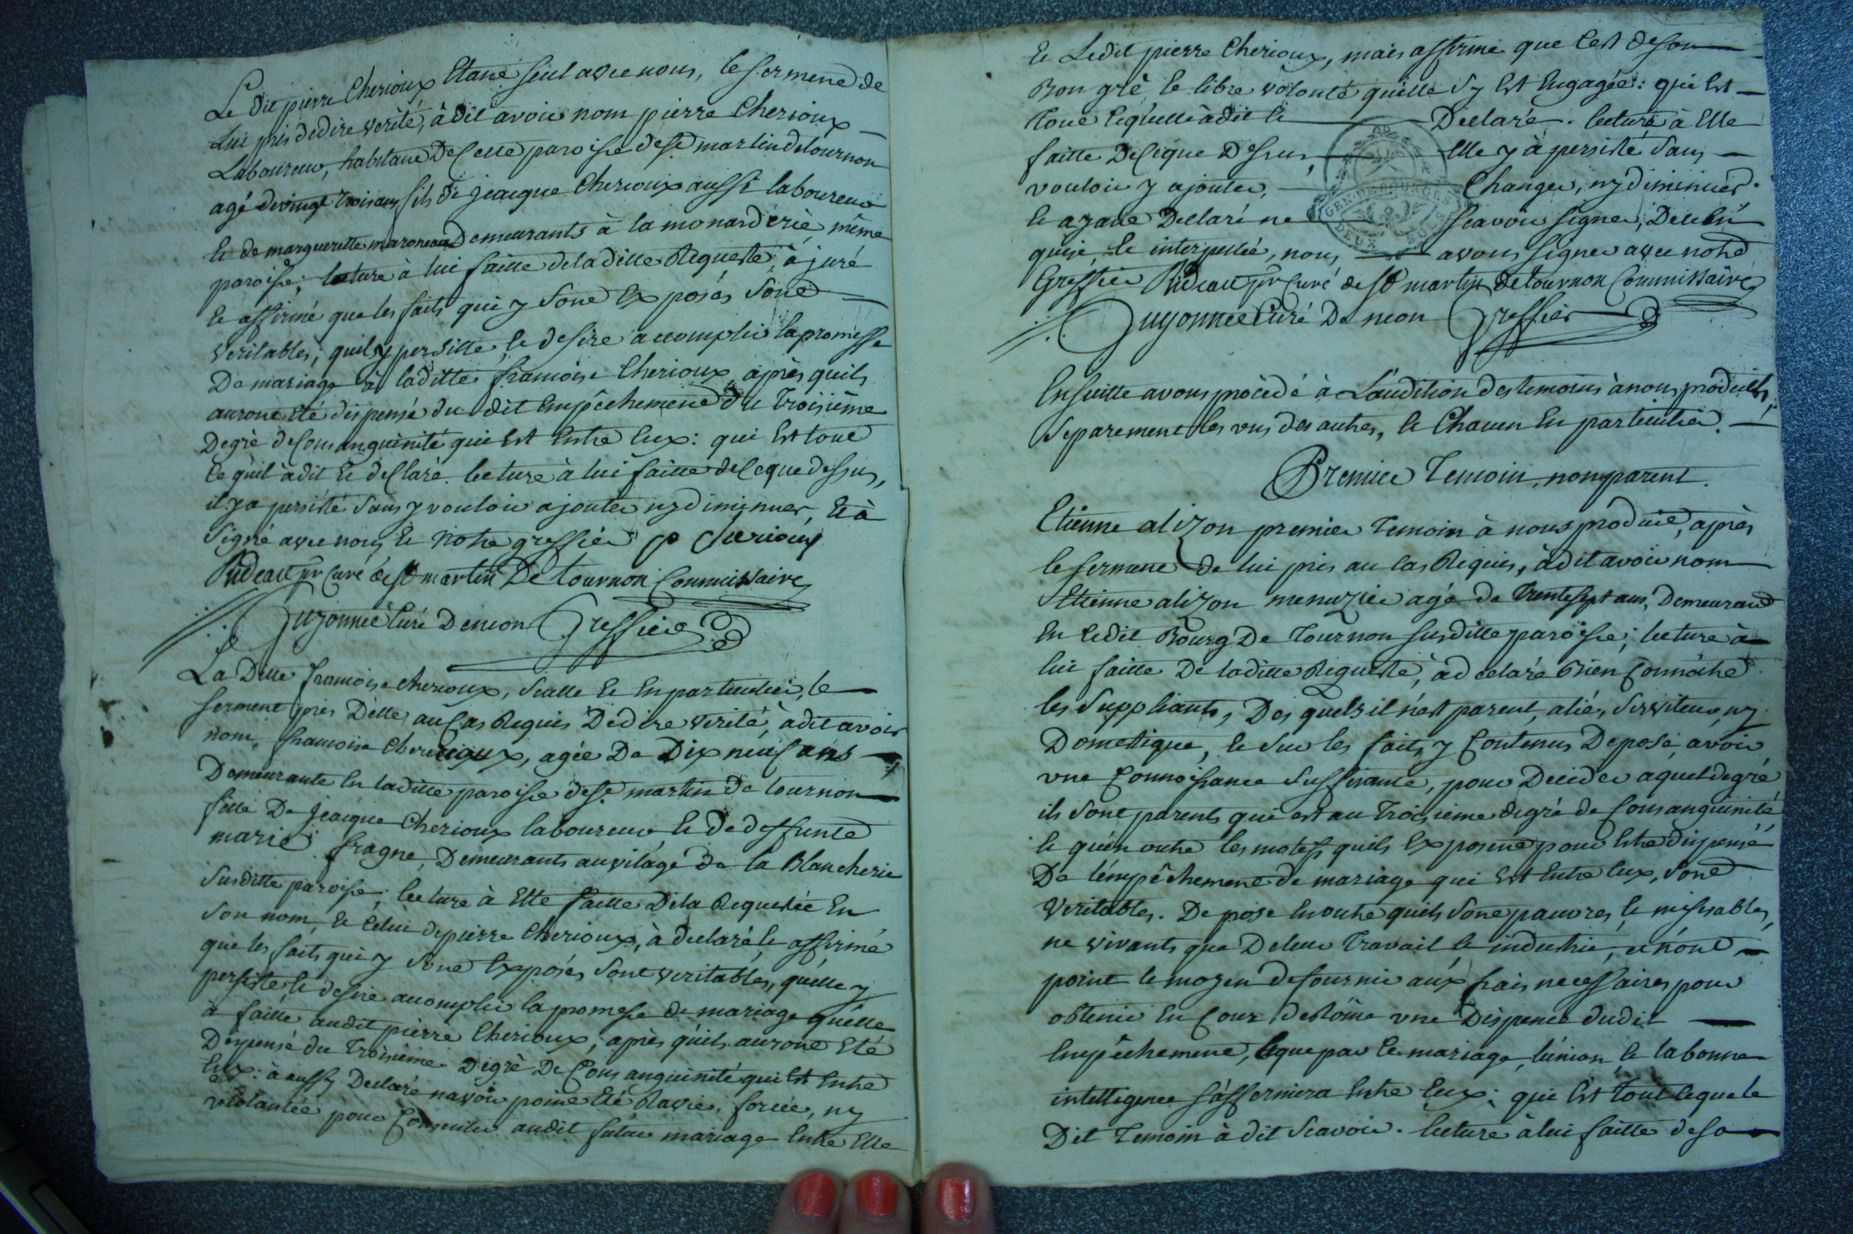 Le dit pierre Cherioux Etant seul avec nous, le serment de
lui pris de dire verité, à dit avoir nom pierre Cherioux
Laboureur, habitant De Cette paroisse de St martin de tournon
agé de vingt trois ans fils de jeacque Cherioux aussi laboureur
Et de margueritte maroneau Demeurants à la monarderie, même
paroisse; lecture à lui faitte de la ditte Requeste, à juré
Et affirmé que les faits qui y sont Exposés sont
veritables, quil y persitte, et desire accomplir la promesse
De mariage à laditte francoise Cherioux après quils
auront eté dispensé du dit Empêchement du troisième
Degrè de Consanguinité qui Est Entre Eux: qui Est tout
Ce quil à dit Et déClaré. lecture à lui faitte de Ce que dessus,
il y a persisté sans y vouloir ajouter ny diminuer, Et à
signé avec nous et notre greffier P Cherioux
Rideau pr Curé de St martin De tournon Commissaire
Guyonnet Curé De neon Greffier
La Ditte francoise cherioux, seulle Et En particulier, le
serment pris Delle au Cas Requis De dire verité, à dit avoir
nom, francoise Cherioux, agée De Dix neuf ans
Demeurante En laditte paroisse de St martin de tournon
fille De jeacque Cherioux laboureur Et De deffunte
marie fragne, Demeurants au vilâge de la Blancherie
susditte paroisse; lecture à Elle faitte De la Requestée En
son nom, et Celui de pierre Cherioux, à declaré, et affirmé
que les faits qui y sont Exposés sont veritables, quelle y
persiste et desire accomplir la promesse de mariage quelle
à faitte audit pierre Cherioux, après quils auront Eté
Dispensé du Troisième Degrè De Consanguinité qui Est Entre
Eux: à aussy Declaré navoir point Eté Ravie, forcée, ny
violantée pour Consentir audit futur mariage Entre Elle
Et Ledit pierre Cherioux, mais affirme que C'est de son
Bon gré et libre volonté quelle s'y Est Engagée: qui Est
tout Ce quelle à dit Et Declaré. lecture à Elle
faitte De Ce que Dessus Elle y à persisté sans
vouloir y ajouter, Changer, ny diminuer.
Et ayant Declaré ne scavoir signer, De ce en
quise, et interpellée, nous avons signer avec notre
Greffier Rideau pr Curé de St martin de tournon Commissaire
Guyonnet Curé De neon Greffier
Ensuitte avons procédé à L'audition des temoins à nous produits,
separement les uns des autres, et Chacun En particulier.
Premier Temoin, non parent.
Etienne alizon premier temoin à nous produit, après
le serment de lui pris au Cas Requis, à dit avoir nom
Etienne alizon menuzier agé de trente sept ans, Demeurant
En Ledit Bourg De tournon susditte paroisse; lecture à
lui faitte De laditte Requeste, à declaré Bien Connoitre
les suppliants, Des quels il n'est parent, aliés, serviteur, ny
Domestique, et sur les faits y Contenus Deposé avoir
une Connoissance suffisante, pour Decider à quel degré
ils sont parents, qui est au troisieme degré de Consanguinité
et qu'en outre les motifs quils Exposent pour Etre dispensé
De l'empêchement de mariage qui Est Entre Eux, sont
Veritables. Depose En outre quils sont pauvres, et miserables,
ne vivants que De leur travail et industrie, et n'ont
point le moyen de fournir aux frais necessaires pour
obtenir En Cour de Rome une Dispence dudit
Empêchement, et que par Ce mariage, lunion, et la bonne
intelligence s'affermira Entre Eux; qui Est tout Ce que le
Dit Temoin à dit scavoir. lecture à lui faitte de sa